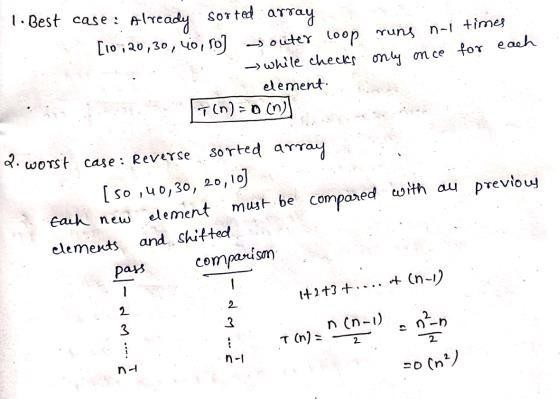 1. Best case: Already sorted array
[10,20,30,40,50] → outer loop runs n-1 times
→ while checks only once for each
element.
T(n) = O(n)
2. worst case: Reverse sorted array
[50,40,30,20,10]
Each new element must be compared with all previous
elements and shifted
pass comparison
1 1
2 2
3 3
⋮ ⋮
n-1 n-1
1+2+3+....+(n-1)
T(n) = n(n-1)/2 = n²-n/2
=O(n²)